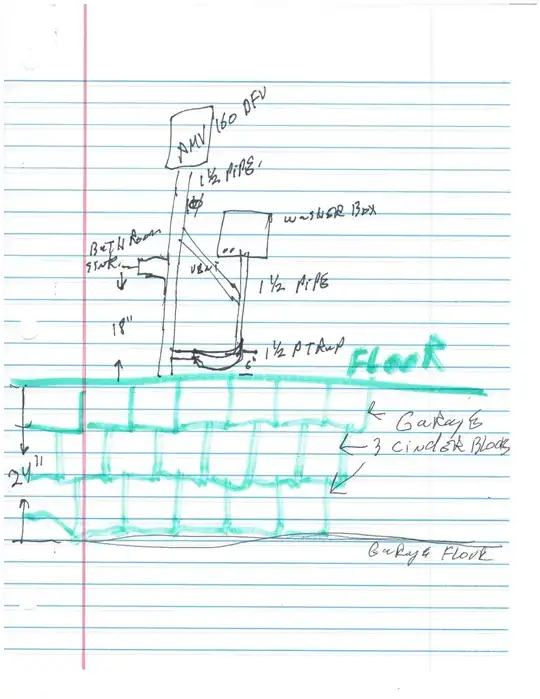 AMV 160 DFU
1 1/2 PIPE.
WASHER BOX
BATHROOM
SINK
VENT
1 1/2 PIPE
18"
1 1/2 P TRAP
6"
FLOOR
GARAGE
3 CINDER BLOCK
24"
GARAGE FLOOR